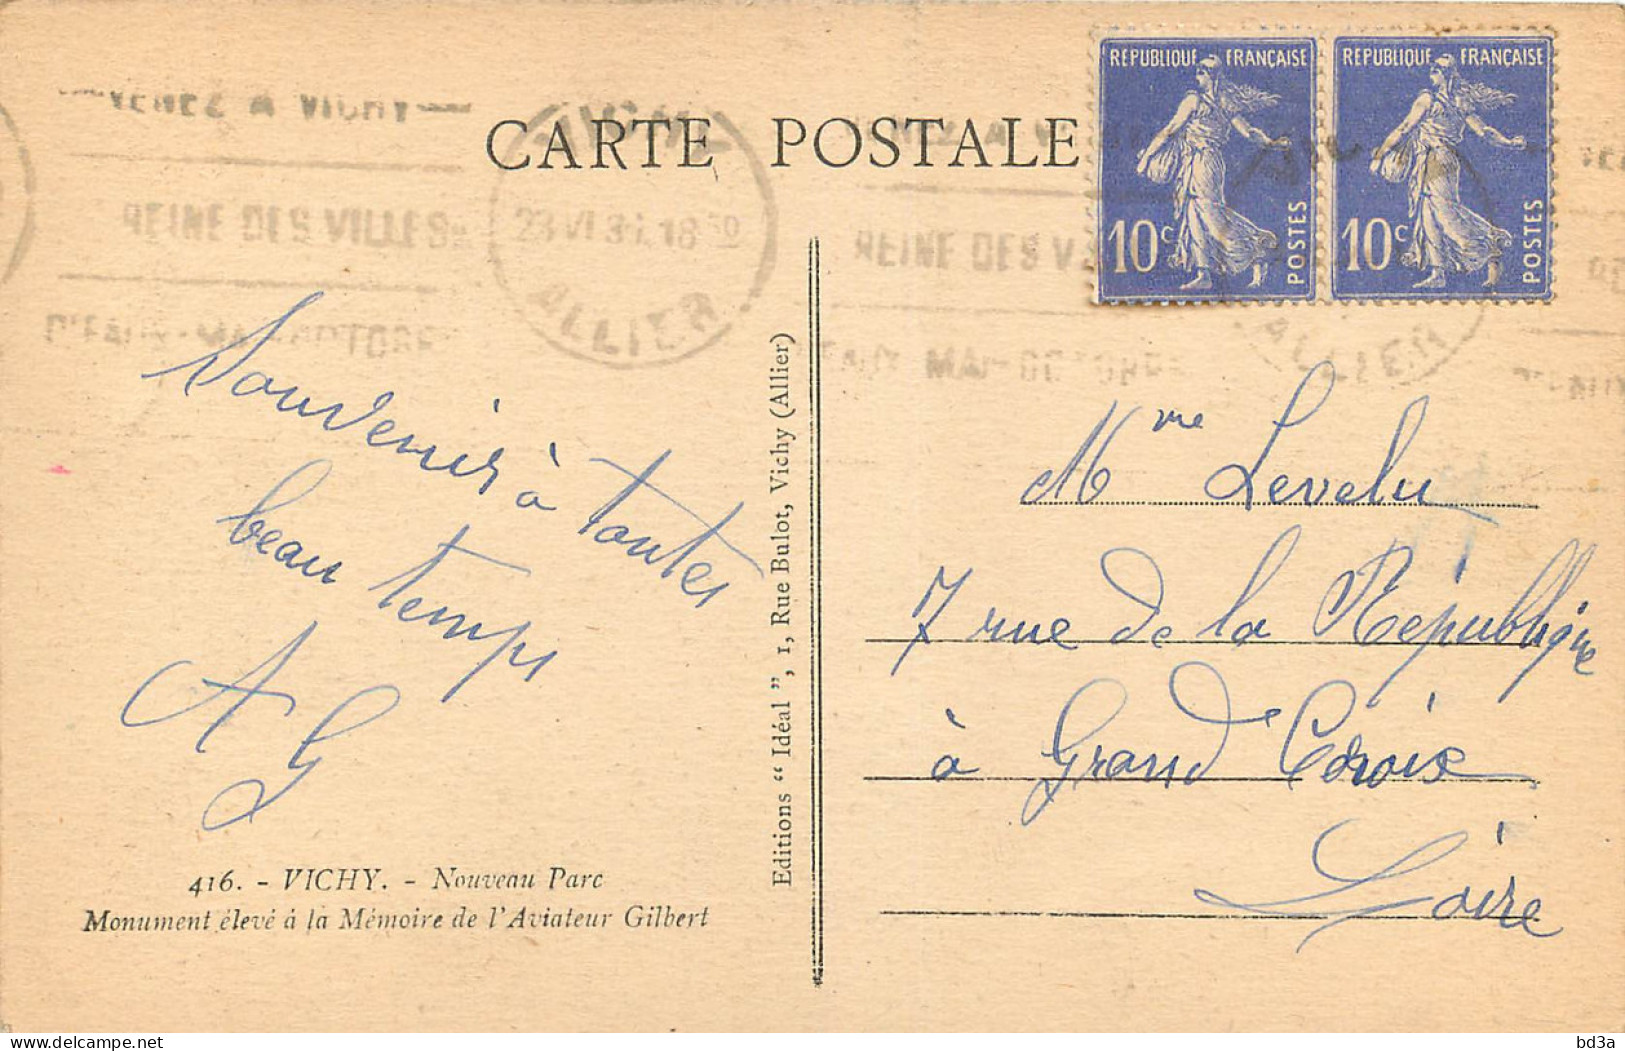 VENEZ A VICHY
REINE DES VILLES
D'EAUX-MAI-OCTOBRE
VICHY
23 VI 18 30
ALLIER
CARTE POSTALE
REPUBLIQUE FRANÇAISE
10c POSTES
REPUBLIQUE FRANÇAISE
10c POSTES
REINE DES V
MAI-OCTOBRE
ALLIER
Souvenir à toutes
beau temps
A G
416. - VICHY. - Nouveau Parc
Monument élevé à la Mémoire de l'Aviateur Gilbert
Editions “ Idéal ”, 1, Rue Bulot, Vichy (Allier)
Mme Levelu
7 rue de la République
à Grand Croix
Loire
delcampe.net
bd3a